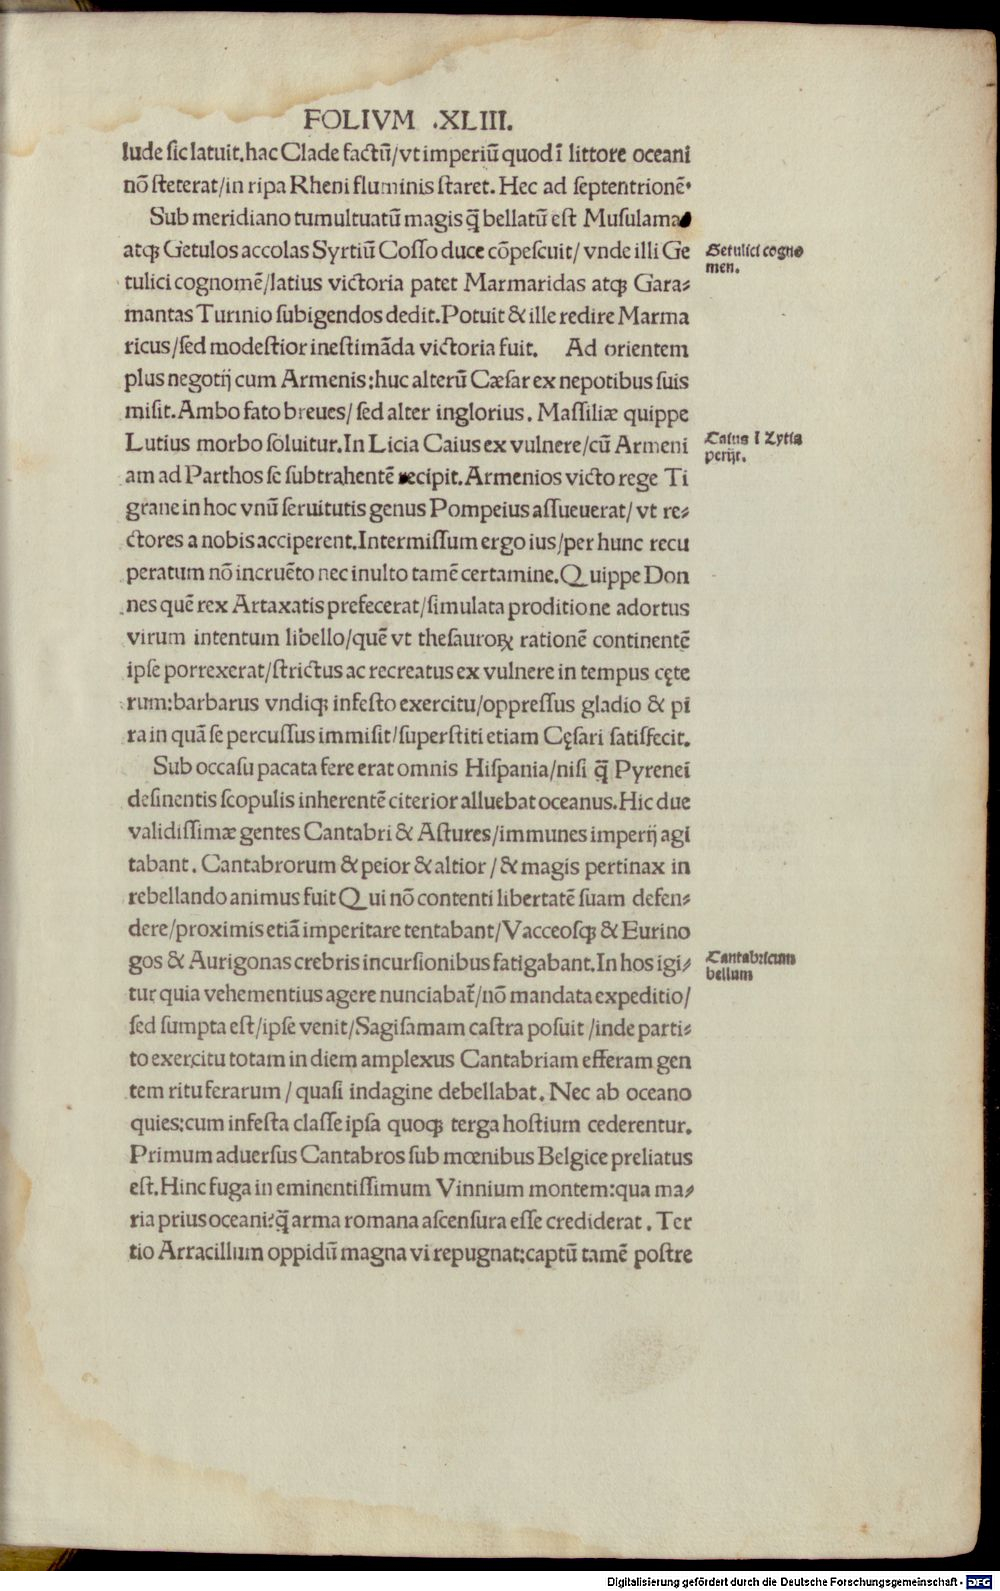 FOLIVM .XLIII.
lude sic latuit. hac Clade factū/ vt imperiū quod ī littore oceani
nō steterat/ in ripa Rheni fluminis staret. Hec ad septentrionē.
Sub meridiano tumultuatū magis q̄ bellatū est Musulamas
atqꝫ Getulos accolas Syrtiū Cosso duce cōpescuit/ vnde illi Ge
Getulici cogno
men.
tulici cognomē/ latius victoria patet Marmaridas atqꝫ Gara⸗
mantas Turinio subigendos dedit. Potuit & ille redire Marma
ricus/ sed modestior in estimāda victoria fuit. Ad orientem
plus negotij cum Armenis: huc alterū Cæsar ex nepotibus suis
misit. Ambo fato breues/ sed alter inglorius. Massiliæ quippe
Lutius morbo soluitur. In Licia Caius ex vulnere/ cū Armeni
Caius ī Lytia
perijt.
am ad Parthos se subtrahentē recipit. Armenios victo rege Ti
grane in hoc vnū seruitutis genus Pompeius assueuerat/ vt re⸗
ctores a nobis acciperent. Intermissum ergo ius/ per hunc recu
peratum nō incruēto nec inulto tamē certamine. Quippe Don
nes quē rex Artaxatis prefecerat/ simulata proditione adortus
virum intentum libello/ quē vt thesauroꝝ rationē continentē
ipse porrexerat/ strictus ac recreatus ex vulnere in tempus cęte
rum: barbarus vndiqꝫ infesto exercitu/ oppressus gladio & pi
ra in quā se percussus immisit/ superstiti etiam Cęsari satisfecit.
Sub occasu pacata fere erat omnis Hispania/ nisi q̄ Pyrenei
desinentis scopulis inherentē citerior alluebat oceanus. Hic due
validissimæ gentes Cantabri & Astures/ immunes imperij agi
tabant. Cantabrorum & peior & altior / & magis pertinax in
rebellando animus fuit Qui nō contenti libertatē suam defen⸗
dere/ proximis etiā imperitare tentabant/ Vacceosqꝫ & Eurino
gos & Aurigonas crebris incursionibus fatigabant. In hos igi⸗
Cantabricum
bellum
tur quia vehementius agere nunciabat᷑/ nō mandata expeditio/
sed sumpta est/ ipse venit/ Sagisamam castra posuit / inde parti⸗
to exercitu totam in diem amplexus Cantabriam efferam gen
tem ritu ferarum / quasi indagine debellabat. Nec ab oceano
quies: cum infesta classe ipsa quoqꝫ terga hostium cederentur.
Primum aduersus Cantabros sub mœnibus Belgice preliatus
est. Hinc fuga in eminentissimum Vinnium montem: qua ma⸗
ria prius oceani? q̄ arma romana ascensura esse crediderat. Ter
tio Arracillum oppidū magna vi repugnat: captū tamē postre
Digitalisierung gefördert durch die Deutsche Forschungsgemeinschaft - DFG